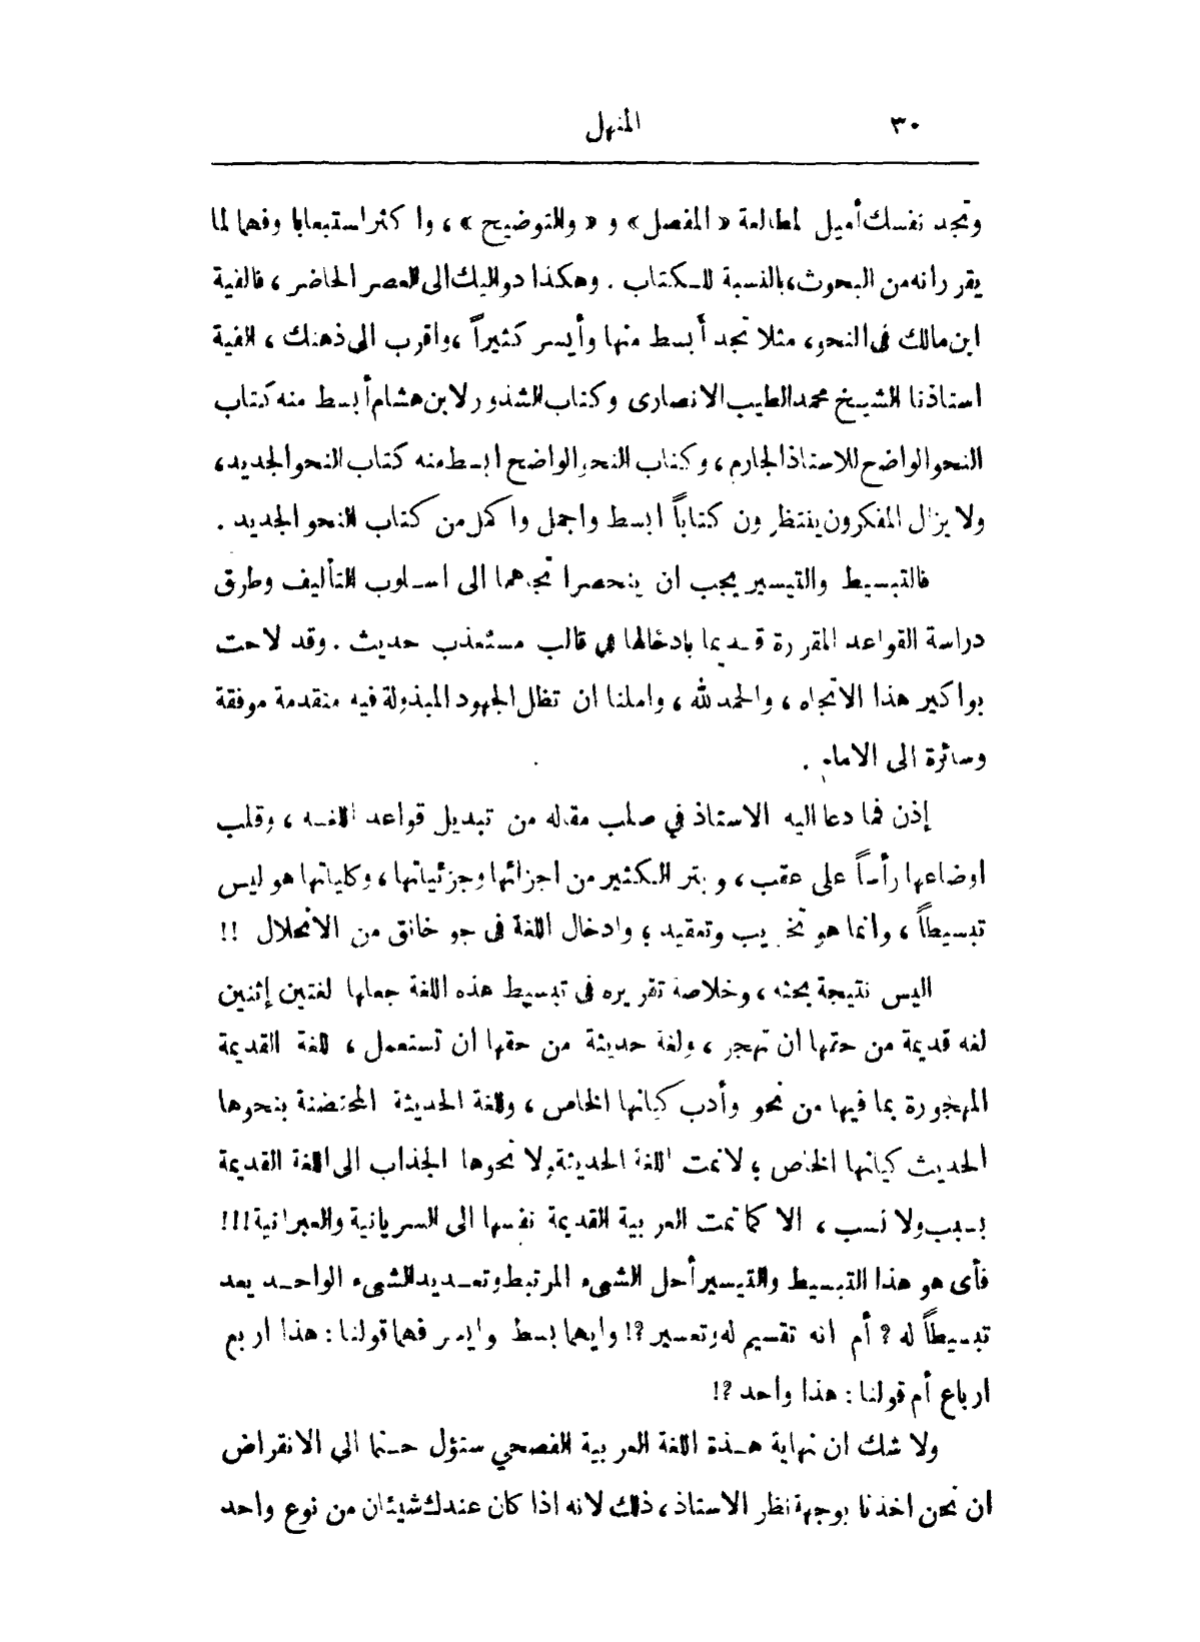 ٣٠ المنهل
وتجد نفسك أميل لمطالعة « المفصل » و « والتوضيح » ، وا كثر استيعابا وفهما لما
يقر رانه من البحوث، بالنسبة للـكتاب . وهكذا دواليك الى العصر الحاضر ، فالفية
ابن مالك فى النحو، مثلا تجد أبسط منها وأيسر كثيراً ، واقرب الى ذهنك ، الفية
استاذنا الشيـخ محمد الطيب الانصارى وكتاب الشذور لابن هشام أبسط منه كتاب
النحو الواضح للاستاذ الجارم ، وكتاب النحو الواضح ابسط منه كتاب النحو الجديد،
ولا يزال المفكرون ينتظرون كتاباً ابسط واجمل واكمل من كتاب النحو الجديد .
فالتبسيط والتيسير يجب ان ينحصرا تجاههما الى اسـلوب التأليف وطرق
دراسة القواعد المقررة قـديما بادخالها في قالب مستعذب حديث . وقد لاحت
بواكير هذا الاتجاه ، والحمد لله ، واملنا ان تظل الجهود المبذولة فيه متقدمة موفقة
وسائرة الى الامام .
إذن فما دعا اليه الاستاذ في صلب مقاله من تبديل قواعد اللغـه ، وقلب
اوضاعها رأساً على عقب ، و بتر الـكثير من اجزائها وجزئياتها ، وكلياتها هو ليس
تبسيطاً ، وانما هو تخر يب وتعقيد ؛ وادخال اللغة فى جو خانق من الانحلال !!
اليس نتيجة بحثه ، وخلاصة تقر يره فى تبسيط هذه اللغة جعلها لغتين إثنين
لغه قديمة من حتمها ان تهجر ، ولغة حديثة من حقها ان تستعمل ، للغة القديمة
المهجورة بما فيها من نحو وأدب كيانها الخاص ، وللغة الحديثة المحتضنة بنحوها
الحديث كيانها الخاص ؛ لاتمت اللغة الحديثة ولا نحوها الجذاب الى اللغة القديمة
بـسبب ولا نسب ، الا كما تمت العر بية القديمة نفسها الى السريانية والعبرانية !!!
فأى هو هذا التبسيط والتيسير أحل الشىء المرتبط وتعـديد الشىء الواحـد يعد
تبسيطاً له ؟ أم انه تقسيم له وتعسير ؟! وايهما بسط وايسر فهما قولنا : هذا اربع
ارباع أم قولنا : هذا واحد ؟!
ولا شك ان نهاية هـذة اللغة العر بية الفصحي ستؤل حـتما الي الانقراض
ان نحن اخذنا بوجهة نظر الاستاذ ، ذلك لانه اذا كان عندك شيئان من نوع واحد